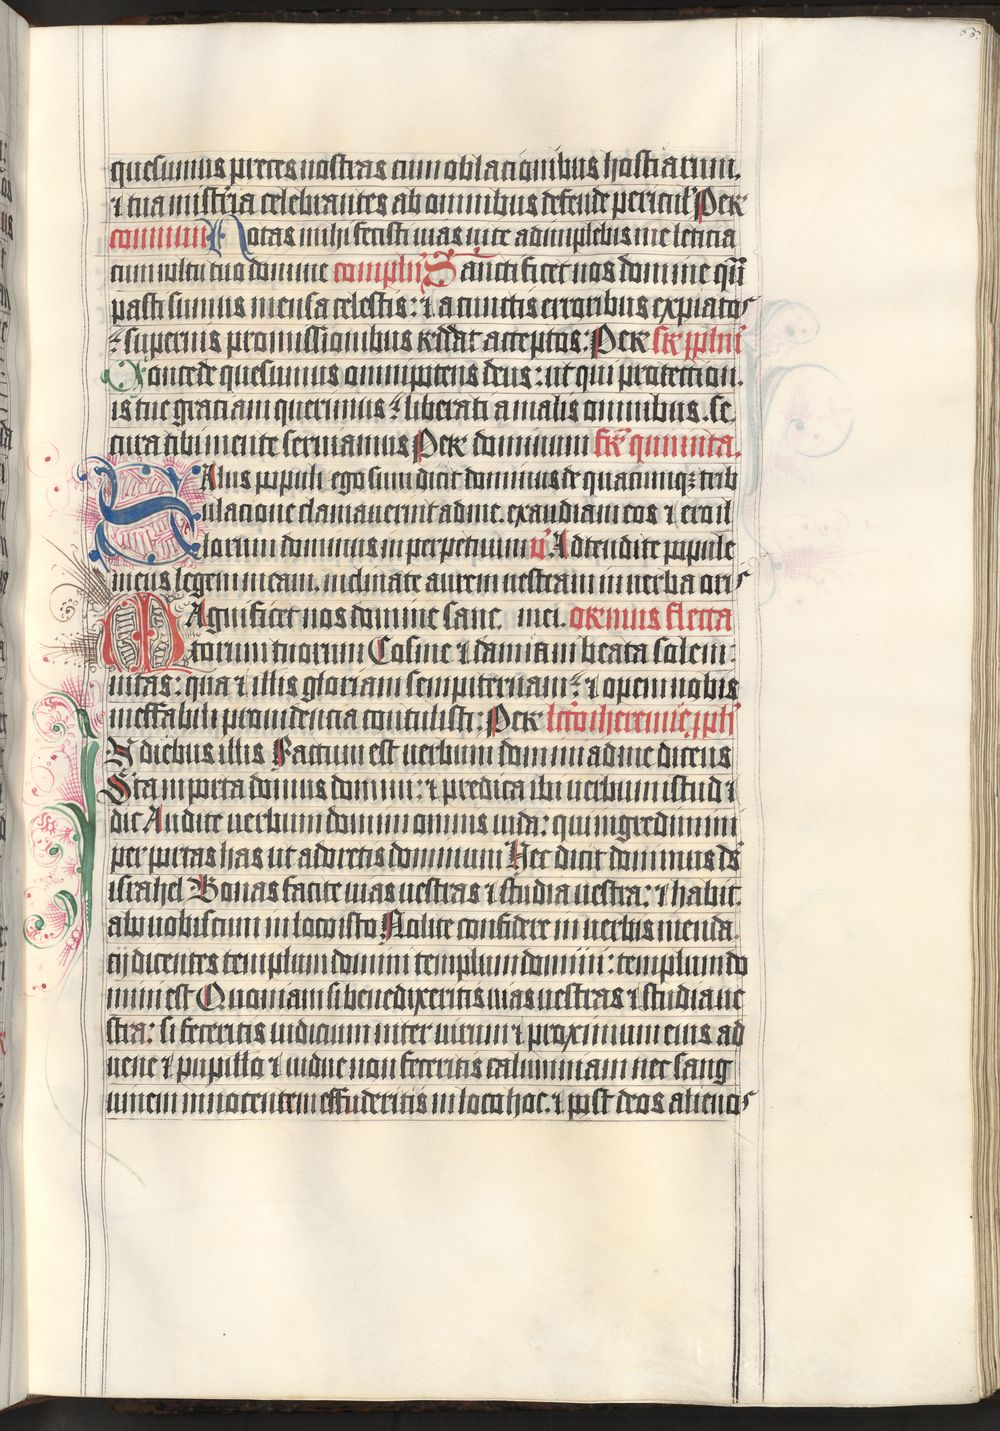 66.
quesumus preces nostras cum oblacionibus hostiarum.
⁊ tua mist'ia celebrantes ab omnibus defende pericul' Per
commun Notas mihi fecisti vias vite adimplebis me leticia
cum vultu tuo domine complen Sanctificet nos domine qua
pasti sumus mensa celestis: ⁊ a cunctis erroribus expiatos
⁊ supernis promissionibus reddat acceptos: Per sr pplm
Concede quesumus omnipotens deus: ut qui protection.
is tue graciam querimus ⁊ liberati a malis omnibus. se
cura tibi mente seruiamus Per dominum fr quinta.
Salus populi ego sum dicit dominus de quacumq; trib
ulacione clamauerint ad me. exaudiam eos ⁊ ero il
lorum dominus in perpetuum v Adtendite popule
meus legem meam. inclinate aurem vestram in verba oris
Magnificet nos domine sanc. mei. oremus flecta
torum tuorum Cosme ⁊ damiani beata solem:
nitas: qua ⁊ illis gloriam sempiternam: ⁊ opem nobis
ineffabili prouidencia contulisti: Per lc̄o iheremie pph
In diebus illis Factum est verbum domini ad me dicens
Sta in porta domus domini: ⁊ predica ibi verbum istud ⁊
dic Audite verbum domini omnis iuda: qui ingredimini
per portas has ut adoretis dominum Hec dicit dominus ds
israhel Bonas facite vias vestras ⁊ studia vestra: ⁊ habit.
abo vobiscum in loco isto Nolite confidere in verbis menda.
cij dicentes templum domini templum domini: templum do
mini est Quoniam si benedixeritis vias vestras ⁊ studia ve
stra: si feceritis iudicium inter virum ⁊ proximum eius ad
uene ⁊ pupillo ⁊ vidue non feceritis calumniam nec sang
uinem innocentem effuderitis in loco hoc. ⁊ post deos alienos